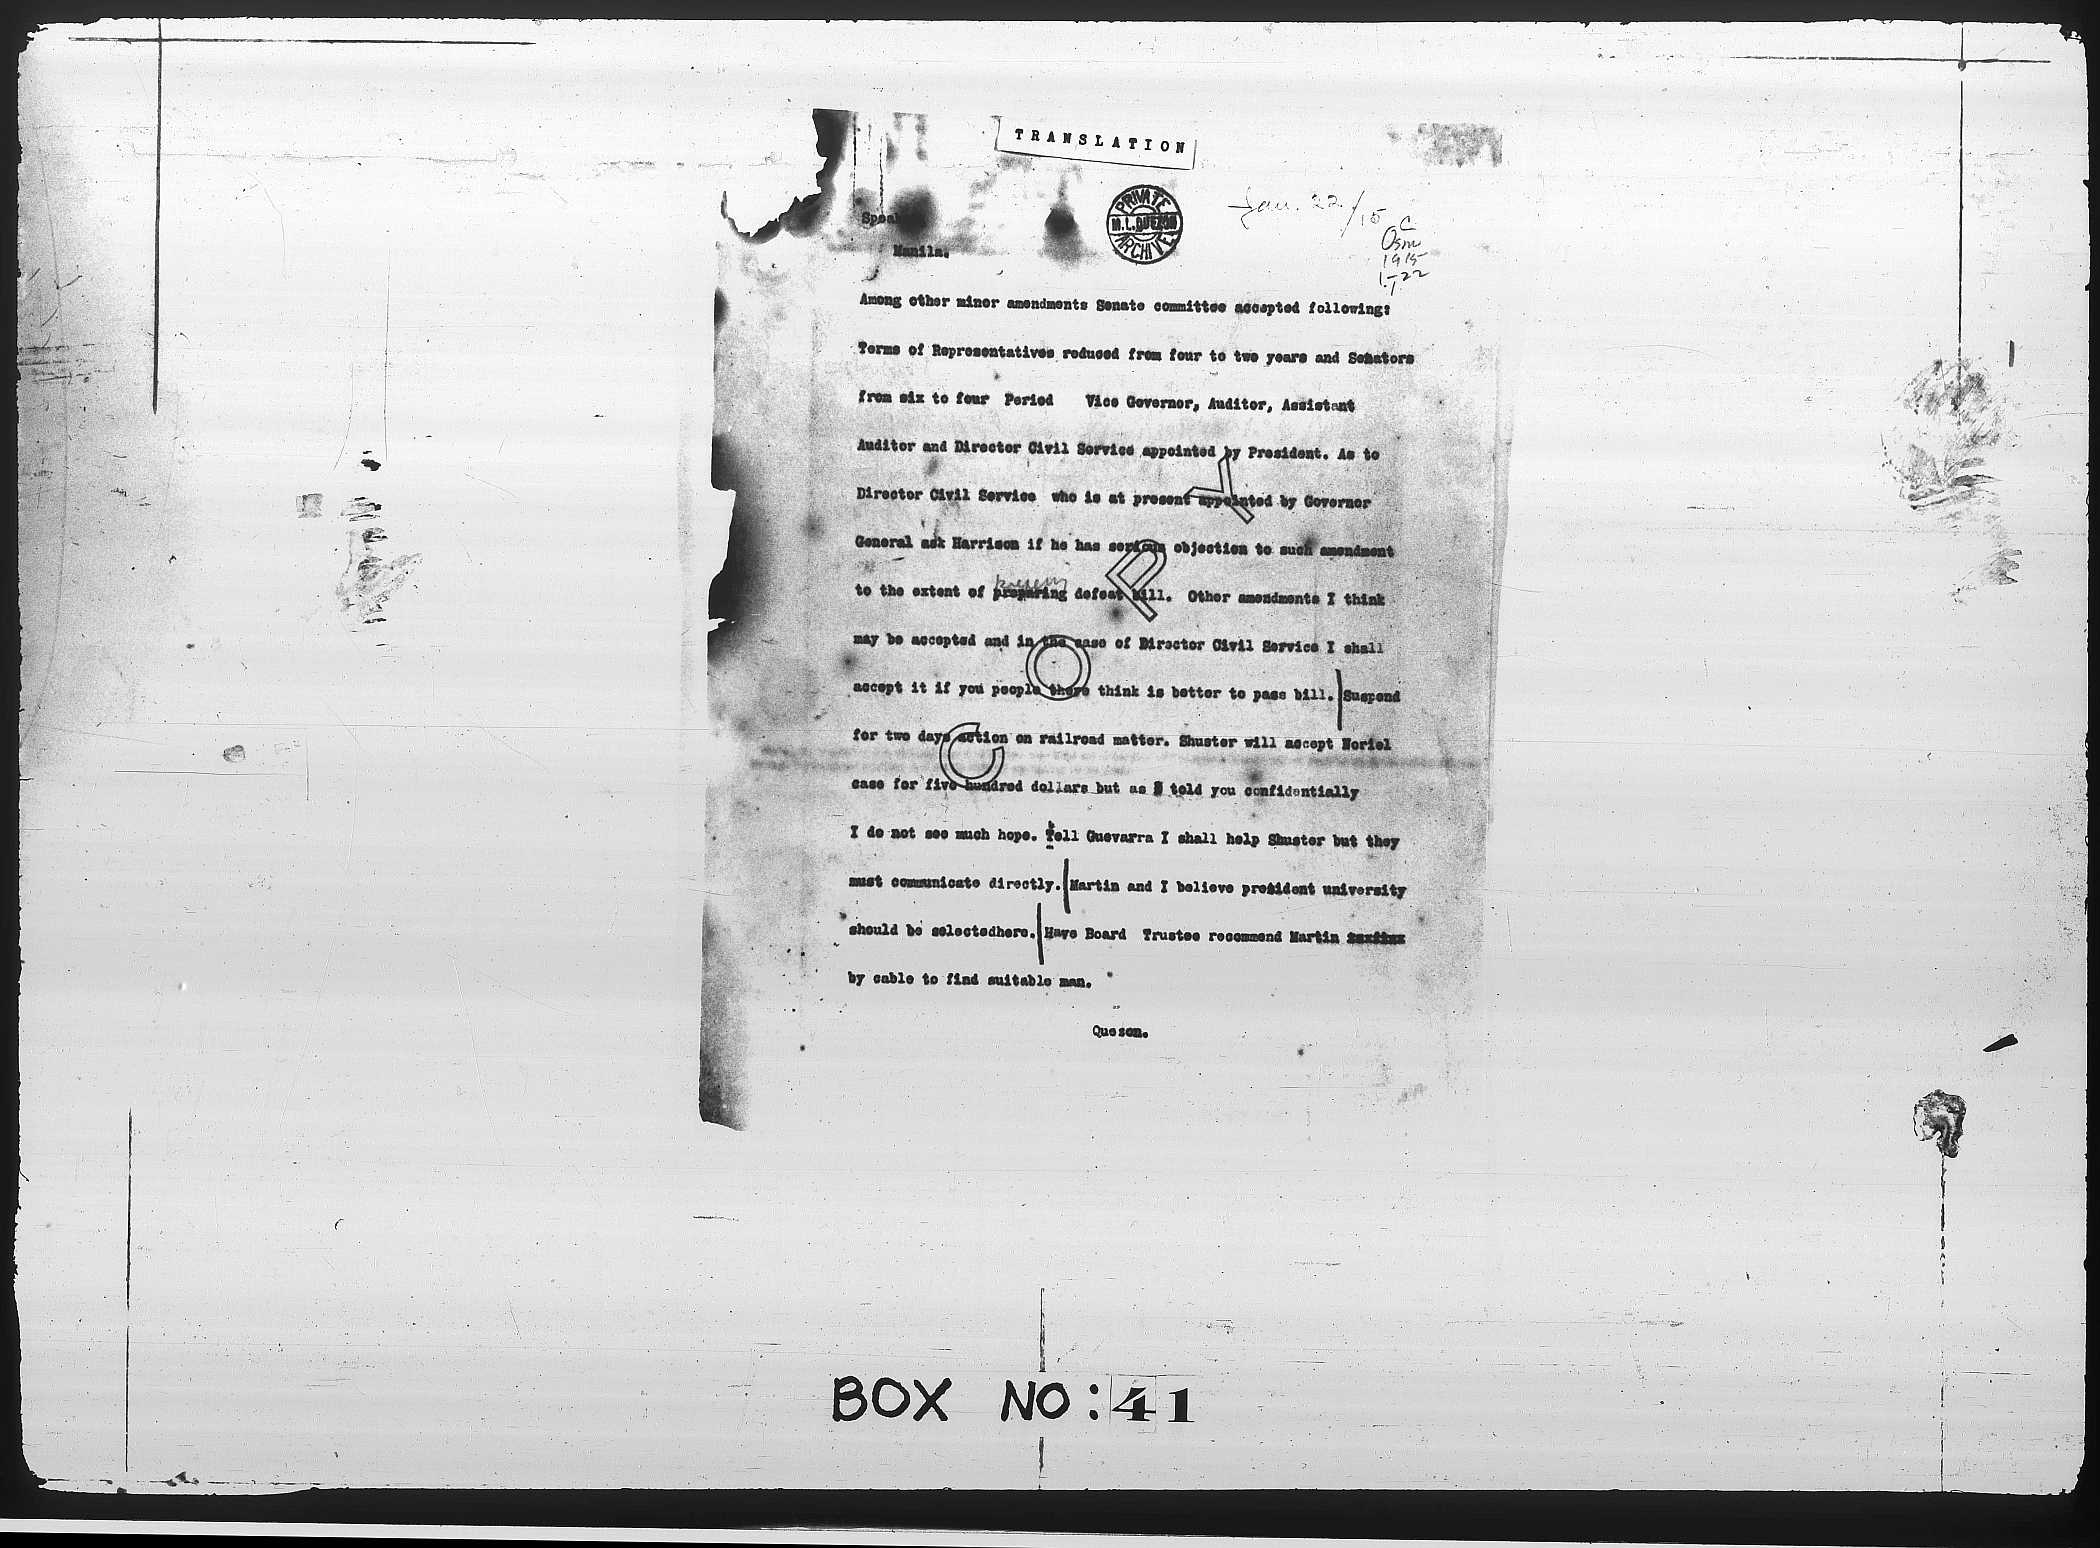 TRANSLATION
PRIVATE
M.L.QUEZON
ARCHIVE
Jan. 22/15
C
Osm
1915
1-22
Manila.
Among other minor amendments Senate committee accepted following:
Terms of Representatives reduced from four to two years and Senators
from six to four Period Vice Governor, Auditor, Assistant
Auditor and Director Civil Service appointed by President. As to
Director Civil Service who is at present appointed by Governor
General ask Harrison if he has serious objection to such amendment
to the extent of preparing defeat bill. Other amendments I think
may be accepted and in the case of Director Civil Service I shall
accept it if you people there think is better to pass bill. Suspend
for two days action on railroad matter. Shuster will accept Noriel
case for five hundred dollars but as I told you confidentially
I do not see much hope. Tell Guevarra I shall help Shuster but they
must communicate directly. Martin and I believe president university
should be selectedhere. Have Board Trustee recommend Martin
by cable to find suitable man.
Queson.
COPY
BOX NO: 41